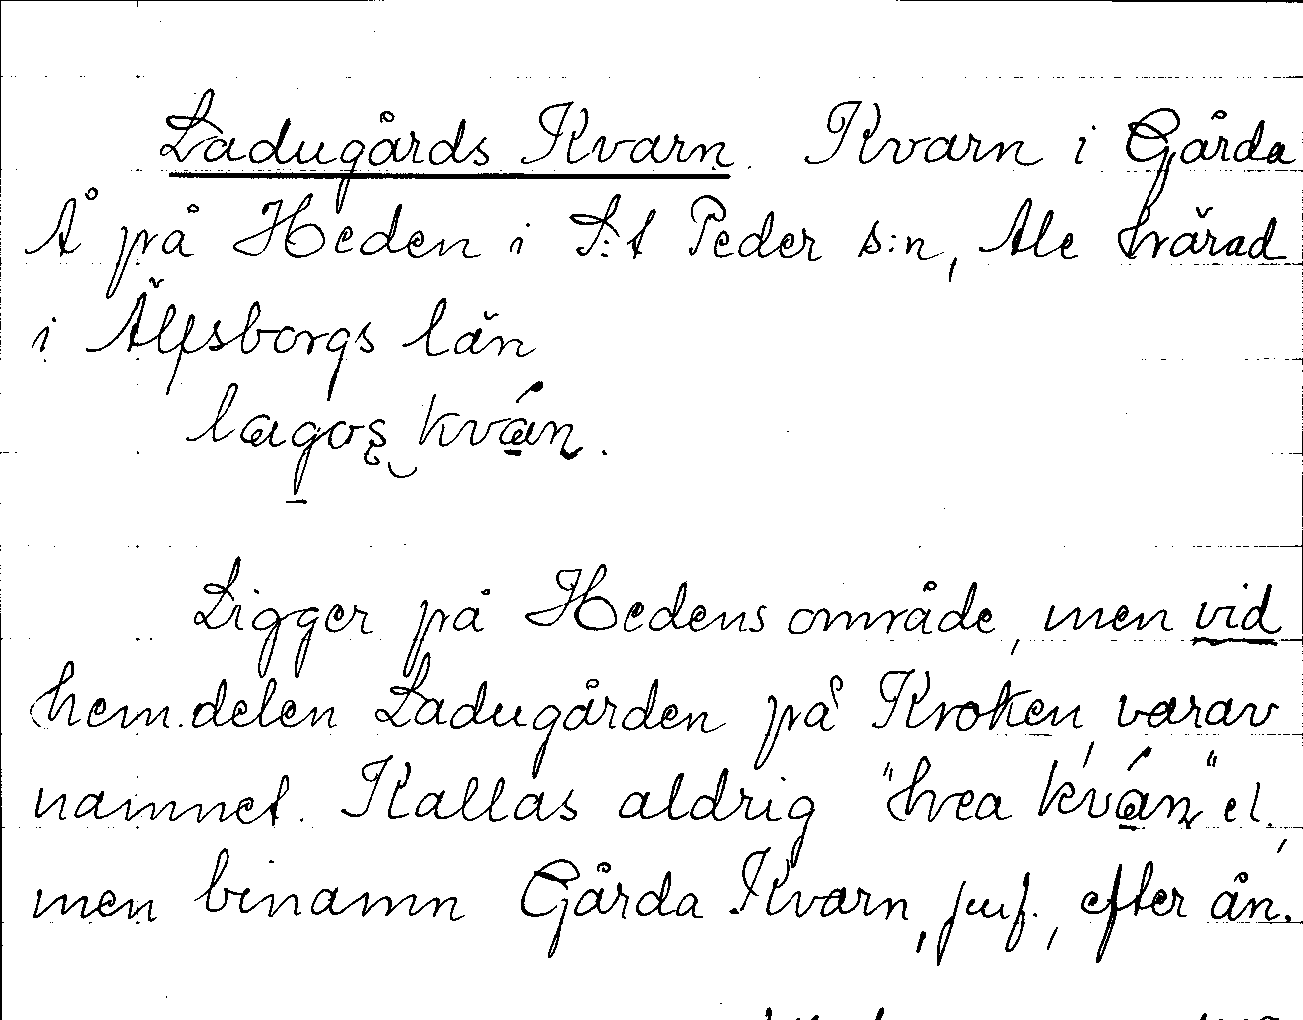 Ladugårds Kvarn. Kvarn i Gårda
Å på Heden i S:t Peder s:n, Ale härad
i Älfsborgs län
lagos kván.
Ligger på Hedens område, men vid
hem.delen Ladugården på Kroken, varav
namnet. Kallas aldrig "hea kván" el.,
men binamn Gårda Kvarn, juf., efter ån.